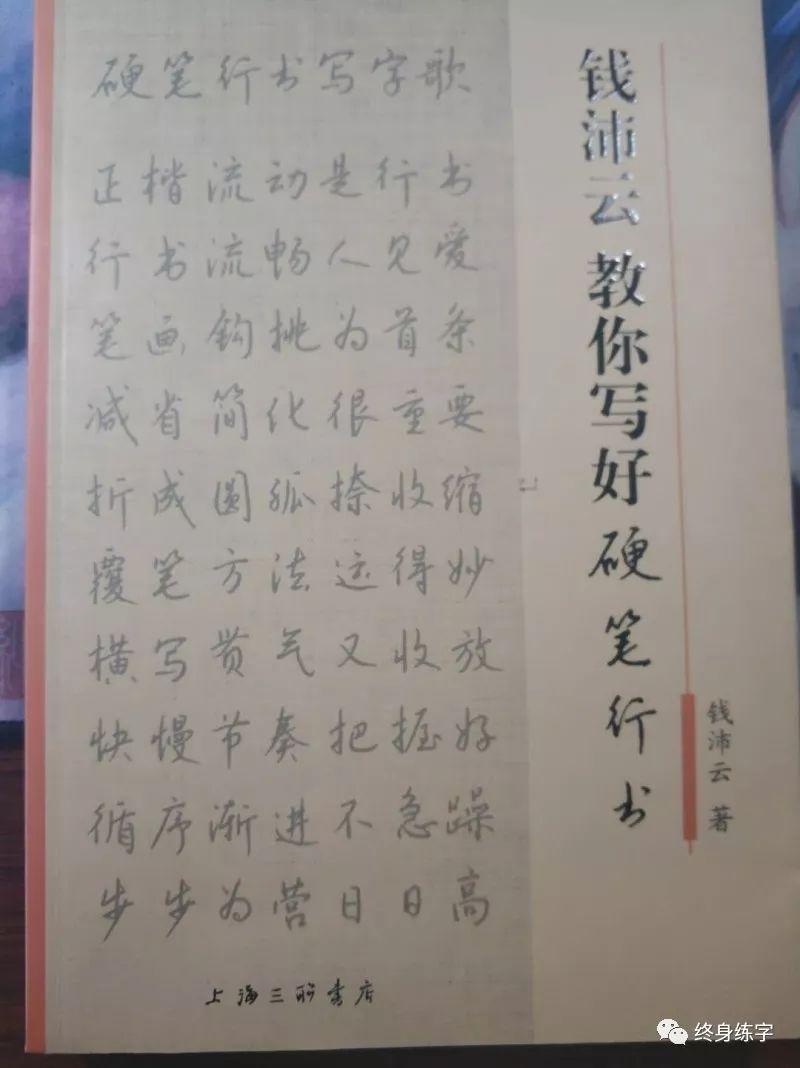 硬笔行书写字歌
正楷流动是行书
行书流畅人见爱
笔画钩挑为首条
减省简化很重要
折成圆弧捺收缩
覆笔方法运得妙
横写贯气又收放
快慢节奏把握好
循序渐进不急躁
步步为营日日高
上海三联书店
钱沛云教你写好硬笔行书
钱沛云 著
终身练字